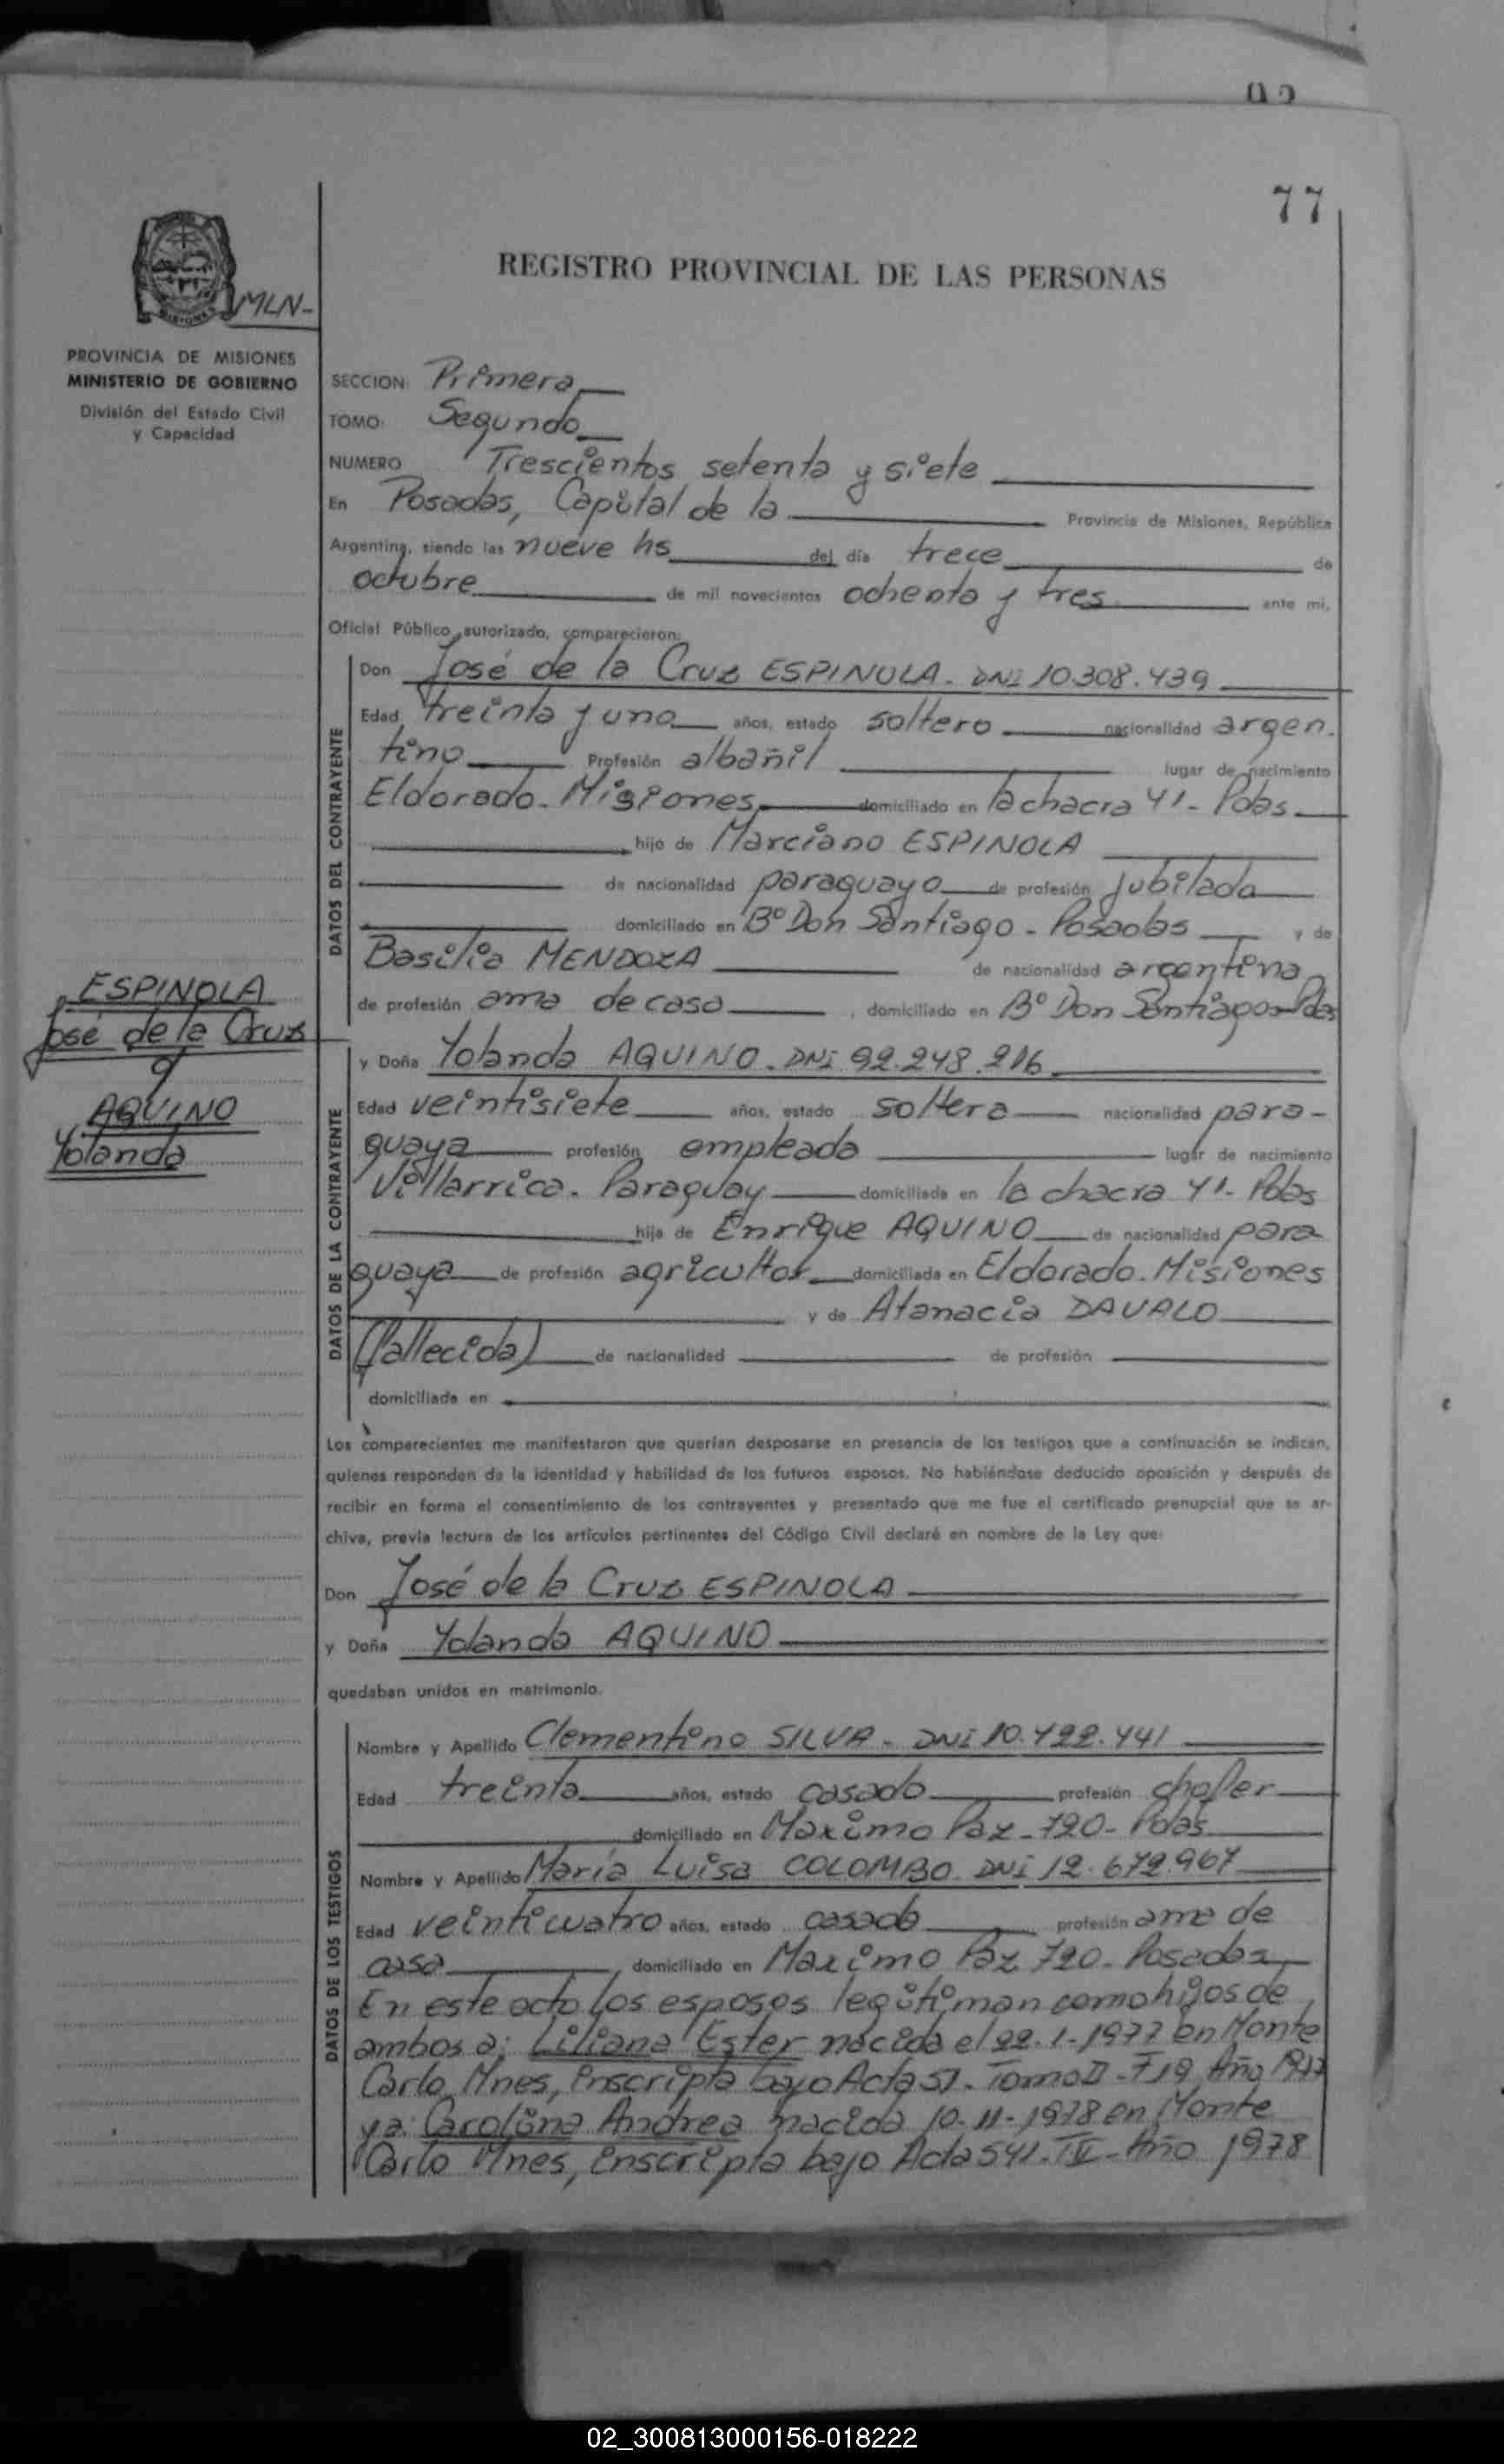 77
REGISTRO PROVINCIAL DE LAS PERSONAS
MLN-
PROVINCIA DE MISIONES
MINISTERIO DE GOBIERNO
División del Estado Civil
y Capacidad
SECCION: Primera
TOMO: Segundo
NUMERO Trescientos setenta y siete
En Posadas, Capital de la Provincia de Misiones, República
Argentina, siendo las nueve hs del día trece de
octubre de mil novecientos ochenta y tres ante mi,
Oficial Público autorizado, comparecieron:
DATOS DEL CONTRAYENTE
Don José de la Cruz ESPINULA. DNI 10.308.439
Edad treinta y uno años, estado soltero nacionalidad argen.
tino Profesión albañil lugar de nacimiento
Eldorado. Misiones domiciliado en la chacra 41- Pdas
hijo de Marciano ESPINOLA
de nacionalidad paraguayo de profesión jubilado
domiciliado en Bº Don Santiago - Posadas y de
Basilia MENDOZA de nacionalidad argentina
de profesión ama de casa, domiciliado en Bº Don Santiago Pdas
ESPINOLA
José de la Cruz
y
AQUINO
Yolanda
DATOS DE LA CONTRAYENTE
y Doña Yolanda AQUINO. DNI 92.248.216
Edad veintisiete años, estado soltera nacionalidad para-
guaya profesión empleada lugar de nacimiento
Villarrica. Paraguay domiciliada en la chacra 41- Pdas
hija de Enrique AQUINO de nacionalidad para
guaya de profesión agricultor domiciliada en Eldorado. Misiones
y de Atanacia DAVALO
(fallecida) de nacionalidad de profesión
domiciliada en
Los comparecientes me manifestaron que querían desposarse en presencia de los testigos que a continuación se indican,
quienes responden de la identidad y habilidad de los futuros esposos. No habiéndose deducido oposición y después de
recibir en forma el consentimiento de los contrayentes y presentado que me fue el certificado prenupcial que se ar-
chiva, previa lectura de los artículos pertinentes del Código Civil declaré en nombre de la Ley que:
Don José de la Cruz ESPINOLA
y Doña Yolanda AQUINO
quedaban unidos en matrimonio.
DATOS DE LOS TESTIGOS
Nombre y Apellido Clementino SILVA. DNI 10.422.441
Edad treinta años, estado casado profesión chofer
domiciliado en Maximo Paz-720- Pdas
Nombre y Apellido María Luisa COLOMBO. DNI 12.672.967
Edad veinticuatro años, estado casada profesión ama de
casa, domiciliado en Maximo Paz 720. Posadas
En este acto los esposos legitiman como hijos de
ambos a: Liliana Ester nacida el 22.1-1977 en Monte
Carlo Mnes, Inscripta bajo Acta 51. Tomo II - F19 Año 1977
y a: Carolina Andrea nacida 10-11-1978 en Monte
Carlo Mnes, Inscripta bajo Acta 541. Año 1978
02_300813000156-018222